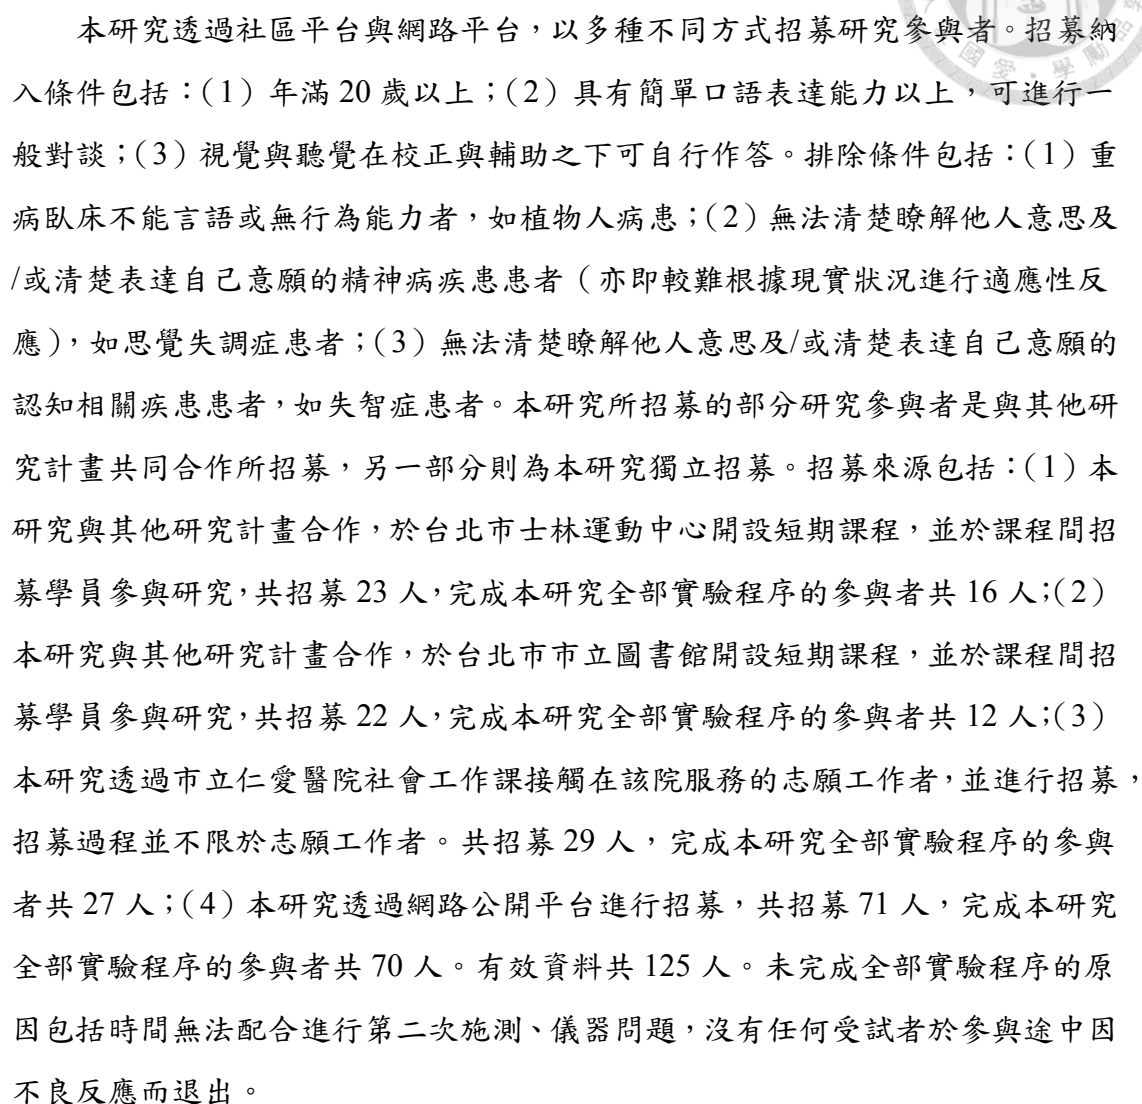 本研究透過社區平台與網路平台，以多種不同方式招募研究參與者。招募納
入條件包括：（1）年滿 20 歲以上；（2）具有簡單口語表達能力以上，可進行一
般對談；（3）視覺與聽覺在校正與輔助之下可自行作答。排除條件包括：（1）重
病臥床不能言語或無行為能力者，如植物人病患；（2）無法清楚瞭解他人意思及
/或清楚表達自己意願的精神病疾患患者（亦即較難根據現實狀況進行適應性反
應），如思覺失調症患者；（3）無法清楚瞭解他人意思及/或清楚表達自己意願的
認知相關疾患患者，如失智症患者。本研究所招募的部分研究參與者是與其他研
究計畫共同合作所招募，另一部分則為本研究獨立招募。招募來源包括：（1）本
研究與其他研究計畫合作，於台北市士林運動中心開設短期課程，並於課程間招
募學員參與研究，共招募 23 人，完成本研究全部實驗程序的參與者共 16 人；（2）
本研究與其他研究計畫合作，於台北市市立圖書館開設短期課程，並於課程間招
募學員參與研究，共招募 22 人，完成本研究全部實驗程序的參與者共 12 人；（3）
本研究透過市立仁愛醫院社會工作課接觸在該院服務的志願工作者，並進行招募，
招募過程並不限於志願工作者。共招募 29 人，完成本研究全部實驗程序的參與
者共 27 人；（4）本研究透過網路公開平台進行招募，共招募 71 人，完成本研究
全部實驗程序的參與者共 70 人。有效資料共 125 人。未完成全部實驗程序的原
因包括時間無法配合進行第二次施測、儀器問題，沒有任何受試者於參與途中因
不良反應而退出。
國愛・學勵品